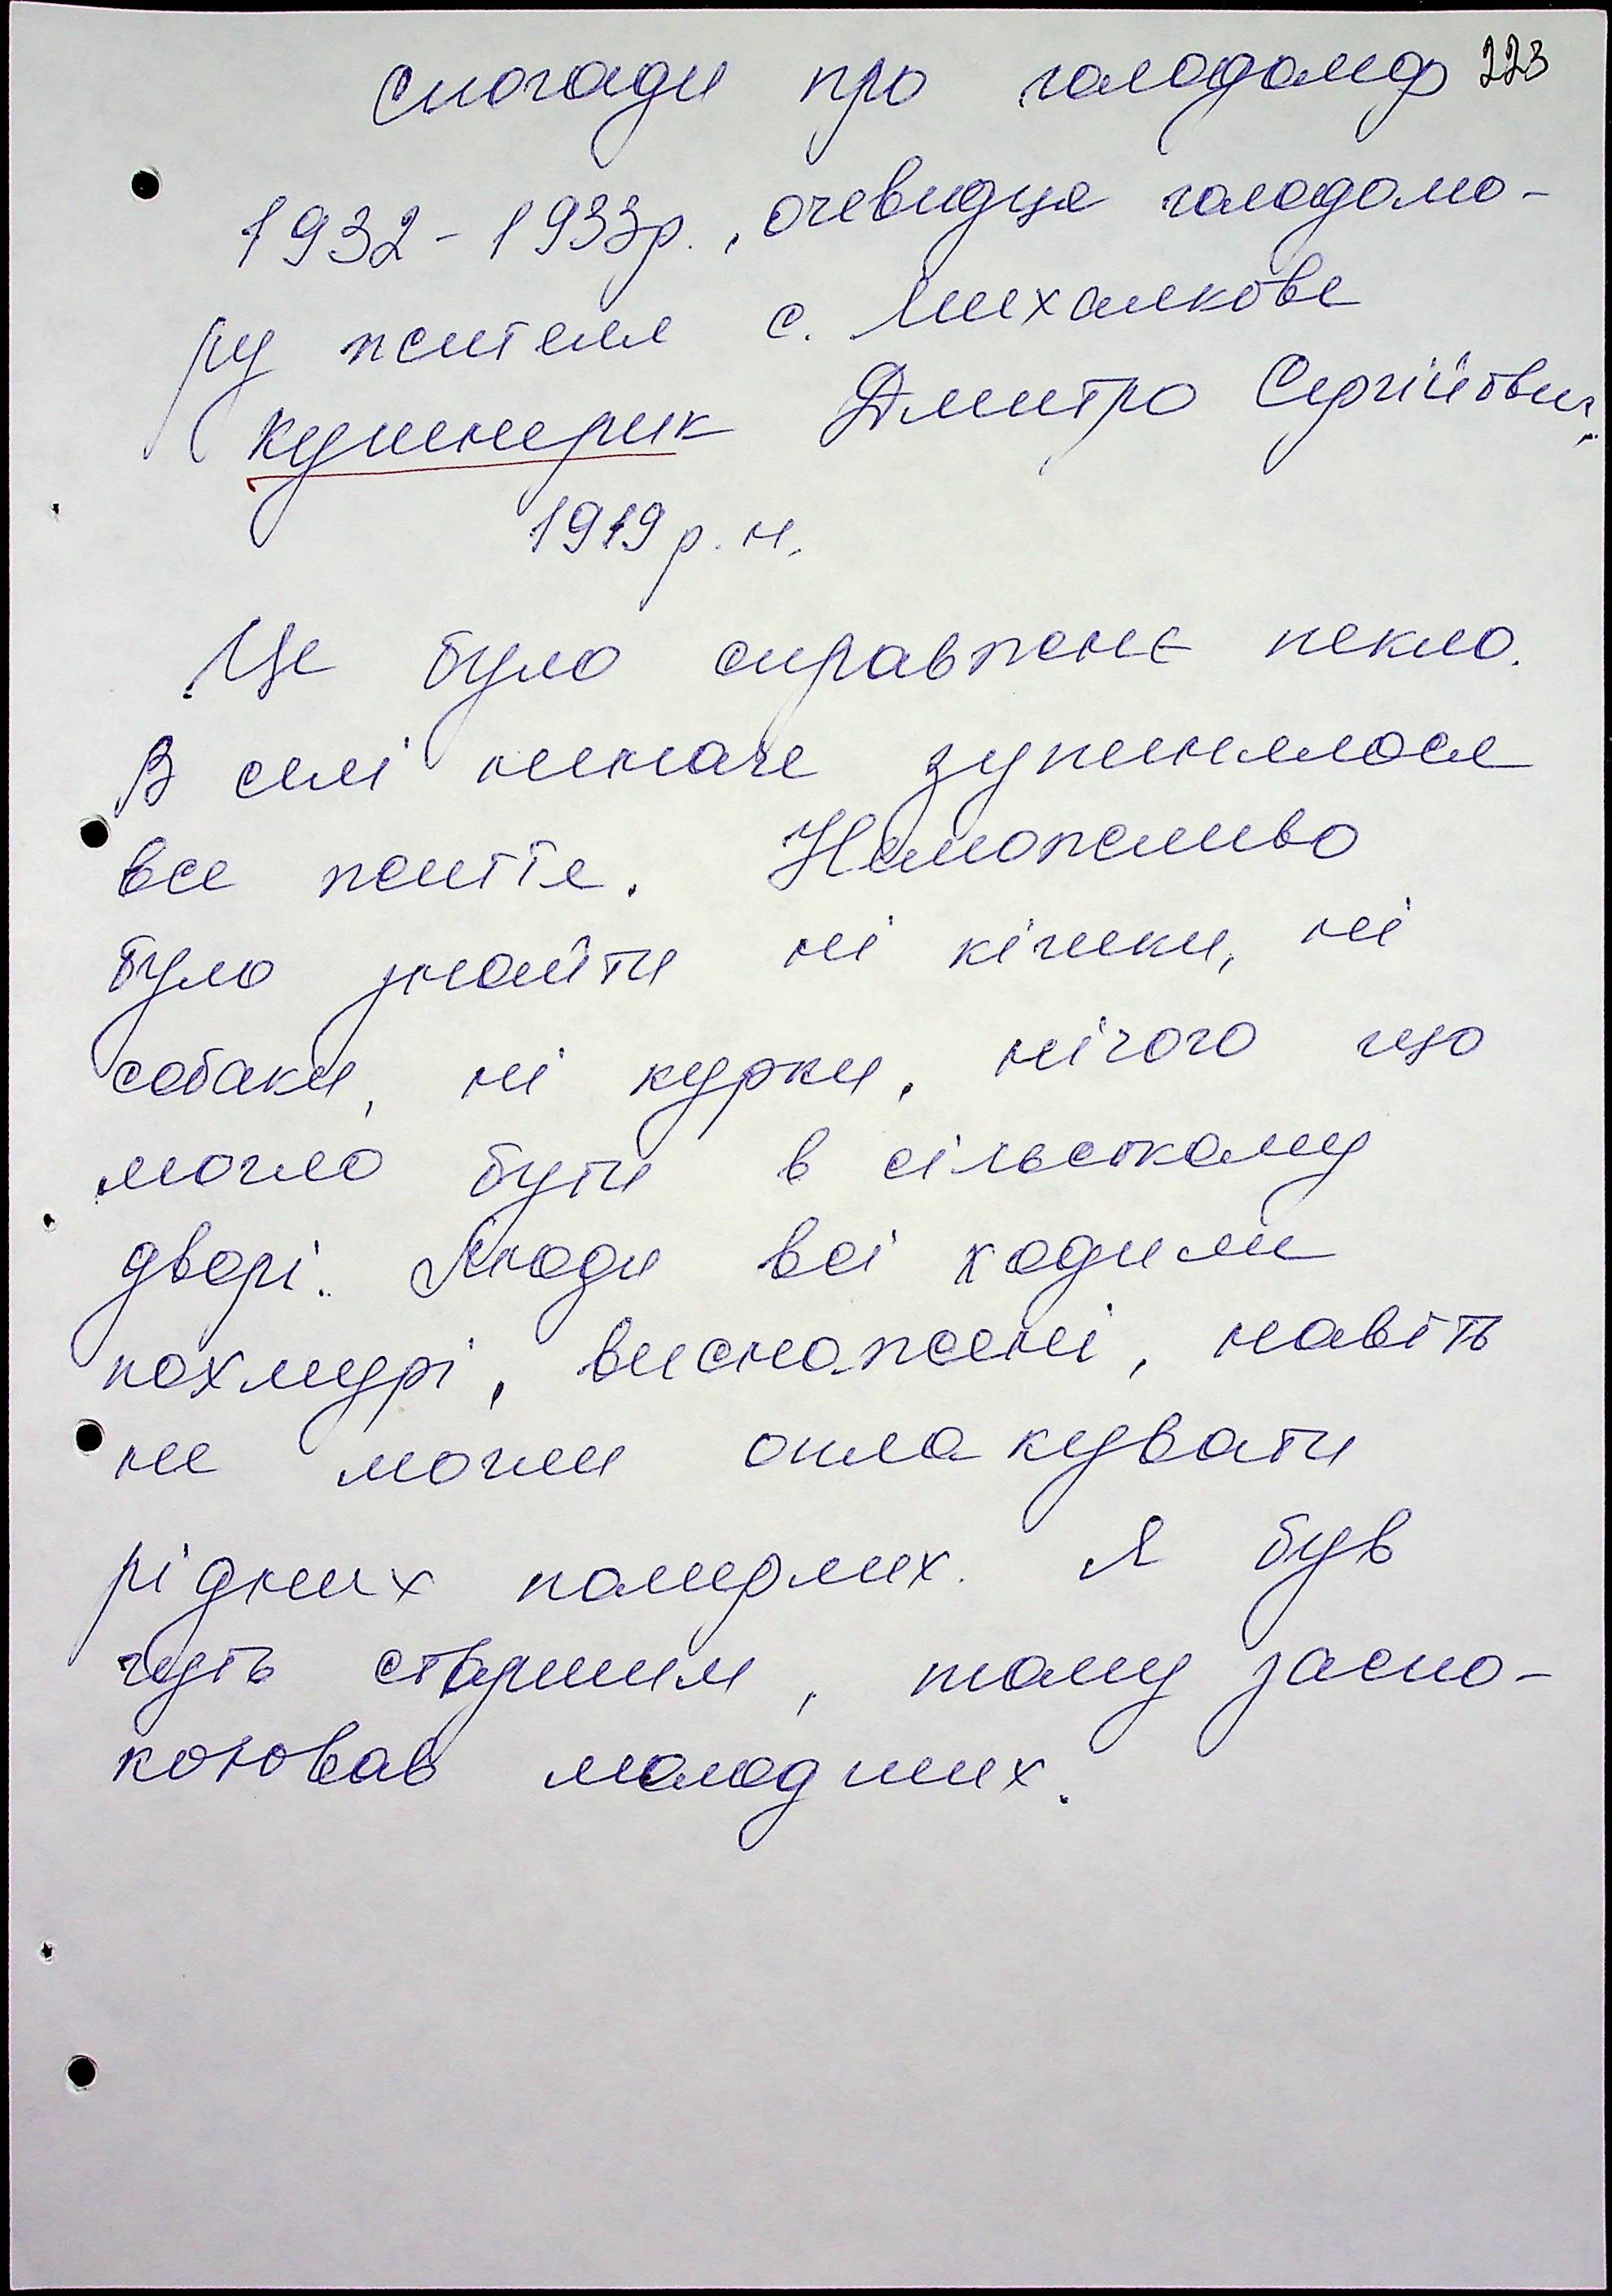 Спогади про голодомор 223
1932-1933р., очевидця голодомо-
ру жителя с. Михалкове
Кушнерик Дмитро Сергійович,
1919 р. н.
Це було справжнє пекло.
В селі неначе зупинилося
все життя. Неможливо
було знайти ні кішки, ні
собаки, ні курки, нічого що
могло бути в сільському
дворі. Люди всі ходили
похмурі, виснажені, навіть
не могли оплакувати
рідних померлих. Я був
чуть старшим, тому заспо-
коював молодших.